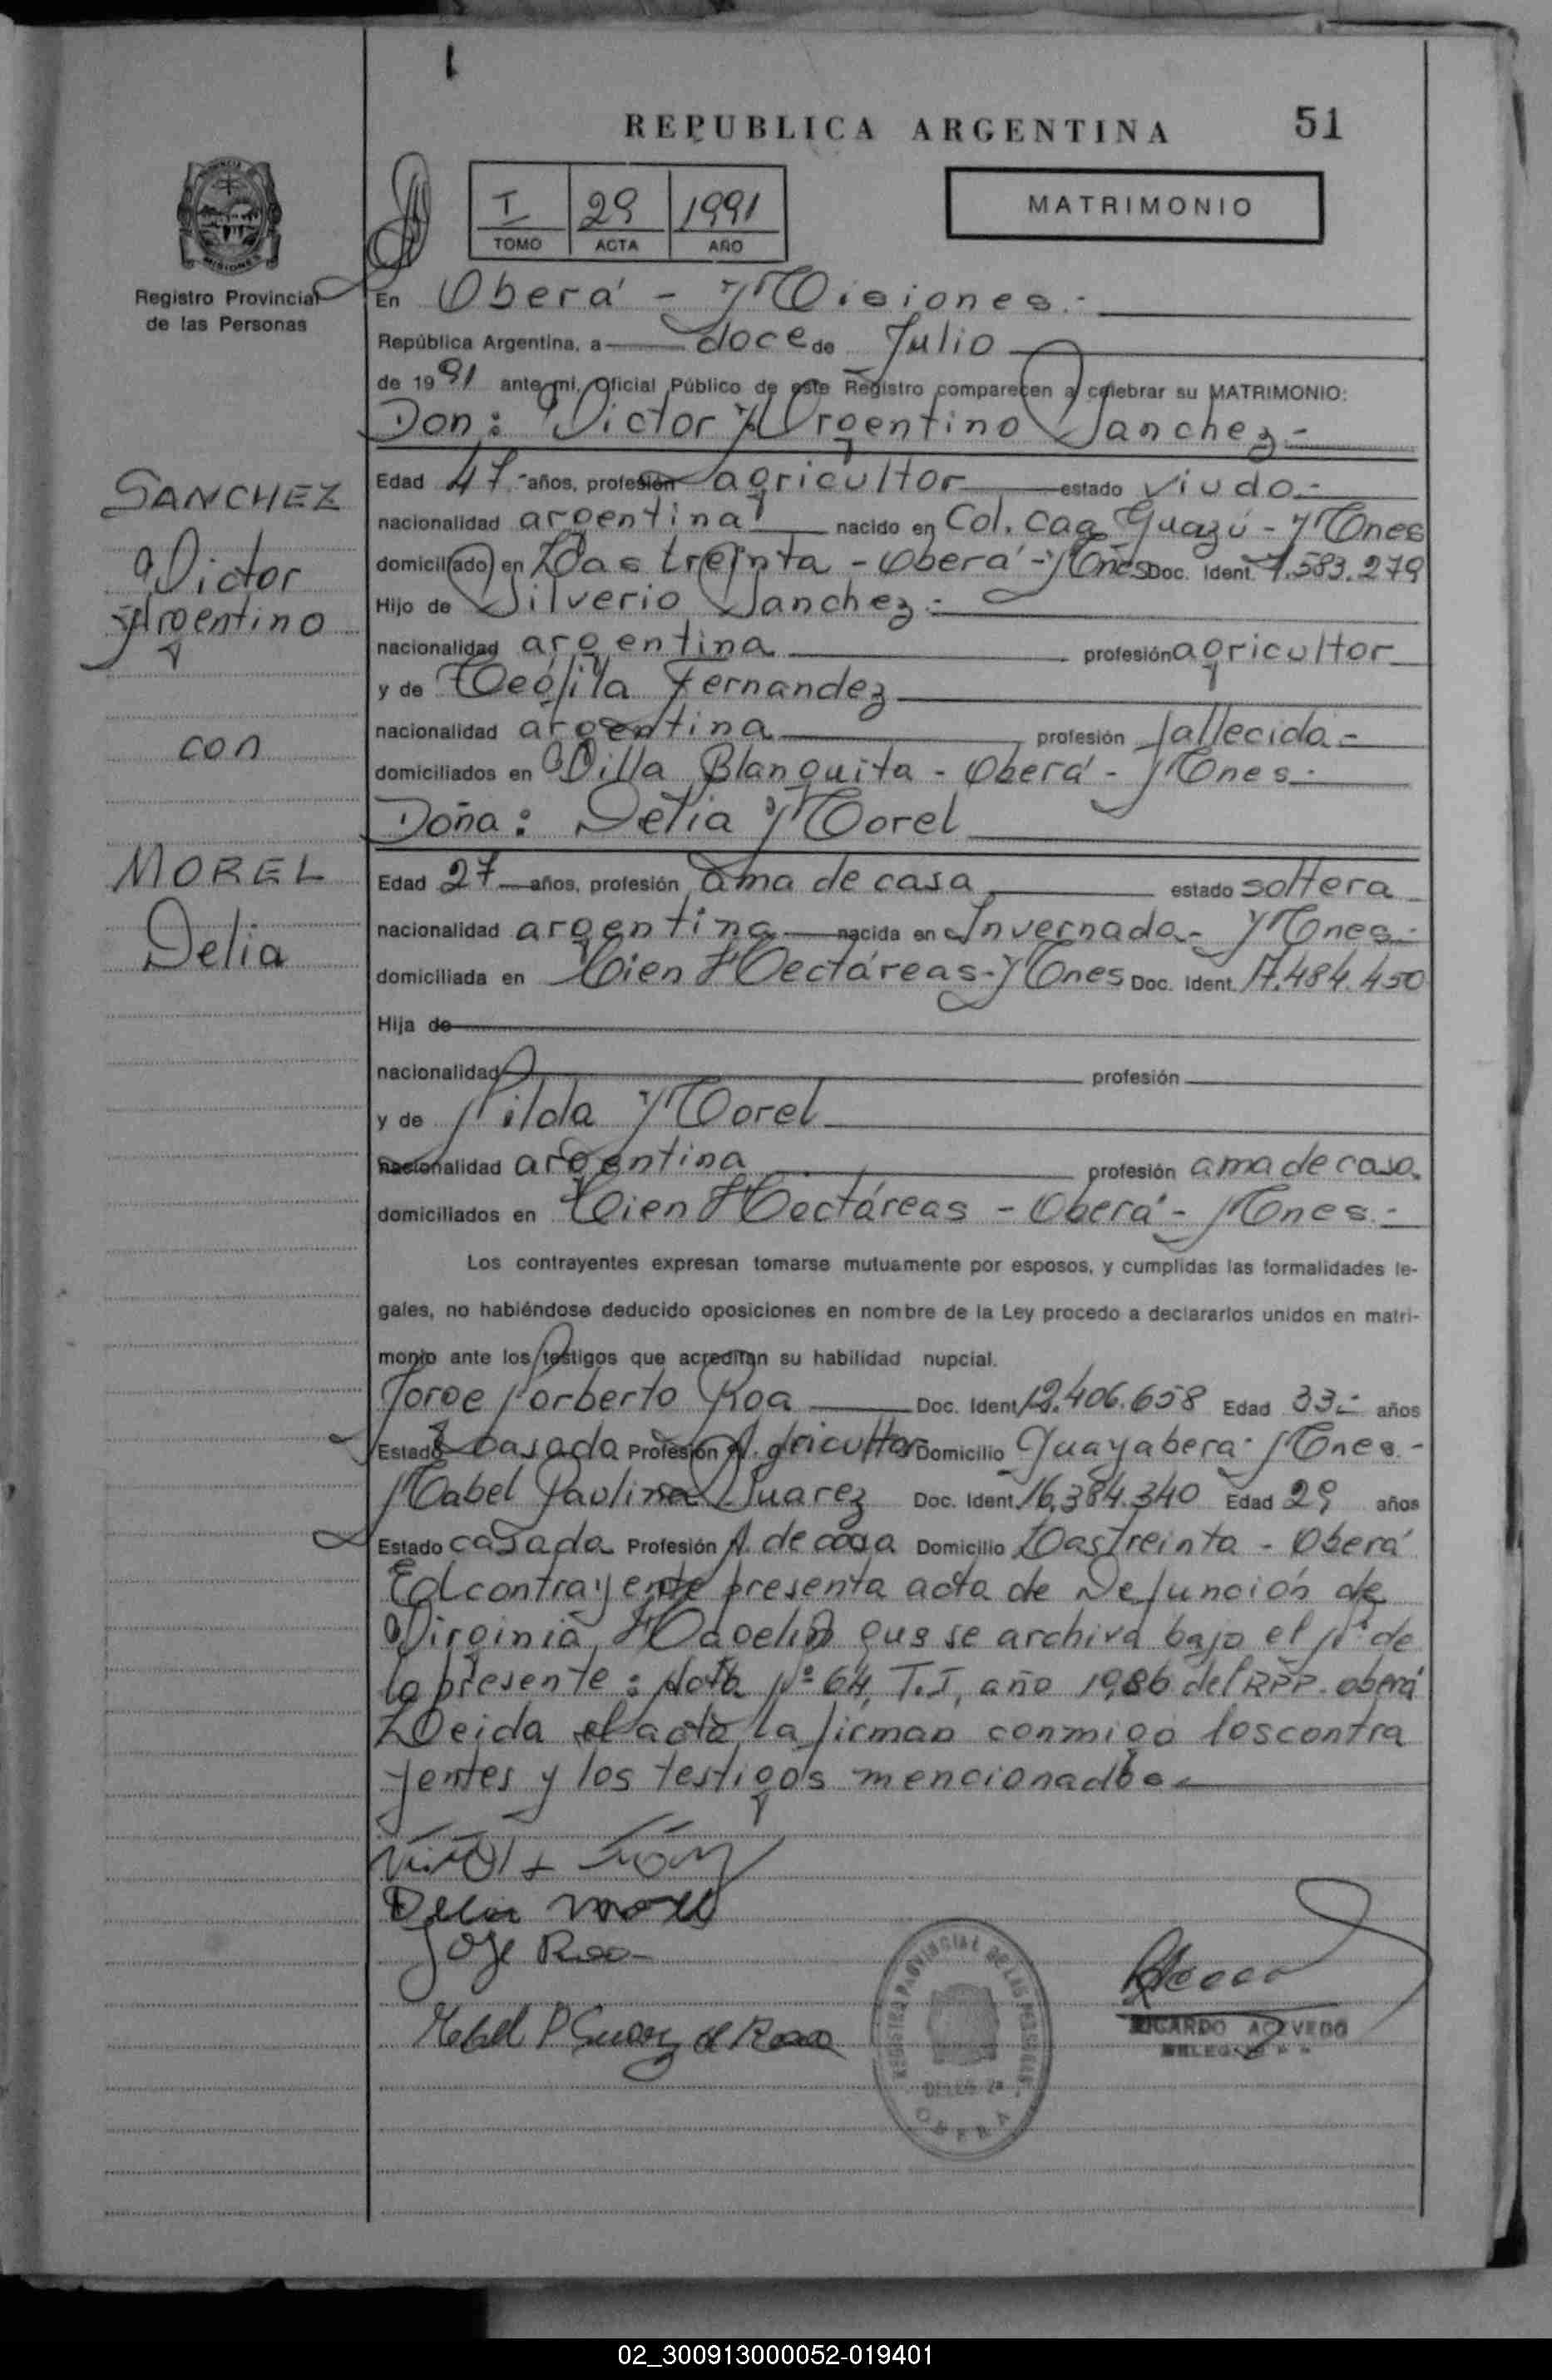 REPUBLICA ARGENTINA
51
I
29
1991
TOMO
ACTA
AÑO
MATRIMONIO
PROVINCIA
MISIONES
Registro Provincial
de las Personas
En Oberá - Misiones.-
República Argentina, a doce de Julio
de 1991 ante mi, Oficial Público de este Registro comparecen a celebrar su MATRIMONIO:
Don: Victor Argentino Sanchez.-
SANCHEZ
Victor
Argentino
con
MOREL
Delia
Edad 47.- años, profesión agricultor estado viudo.-
nacionalidad argentina nacido en Col. Caa Guazú - Mnes
domiciliado en Las treinta - Oberá - Mnes Doc. Ident. 7.583.279
Hijo de Silverio Sanchez.-
nacionalidad argentina profesión agricultor
y de Teófila Fernandez
nacionalidad argentina profesión fallecida.-
domiciliados en Villa Blanquita - Oberá - Mnes.-
Doña: Delia Morel
Edad 27 años, profesión ama de casa estado soltera
nacionalidad argentina nacida en Invernada - Mnes.-
domiciliada en Cien Hectáreas - Mnes Doc. Ident. 17.484.450
Hija de
nacionalidad profesión
y de Nilda Morel
nacionalidad argentina profesión ama de casa
domiciliados en Cien Hectáreas - Oberá - Mnes.-
Los contrayentes expresan tomarse mutuamente por esposos, y cumplidas las formalidades le-
gales, no habiéndose deducido oposiciones en nombre de la Ley procedo a declararlos unidos en matri-
monio ante los testigos que acreditan su habilidad nupcial.
Jorge Norberto Roa Doc. Ident. 12.406.658 Edad 33.- años
Estado casado Profesión Agricultor Domicilio Guayabera - Mnes.-
Mabel Paulina Suarez Doc. Ident. 16.384.340 Edad 29 años
Estado casada Profesión A. de casa Domicilio Las treinta - Oberá
El contrayente presenta acta de Defunción de
Virginia que se archiva bajo el Nº de
la presente: Acta Nº 64, T.I, año 1986 del RPP. Oberá
Leida el acta, la firman conmigo los contra
yentes y los testigos mencionados.-
Delia Morel
Jorge Roa
Mabel P Suarez de Roa
REGISTRO PROVINCIAL DE LAS PERSONAS
OBERA
RICARDO ACEVEDO
02_300913000052-019401